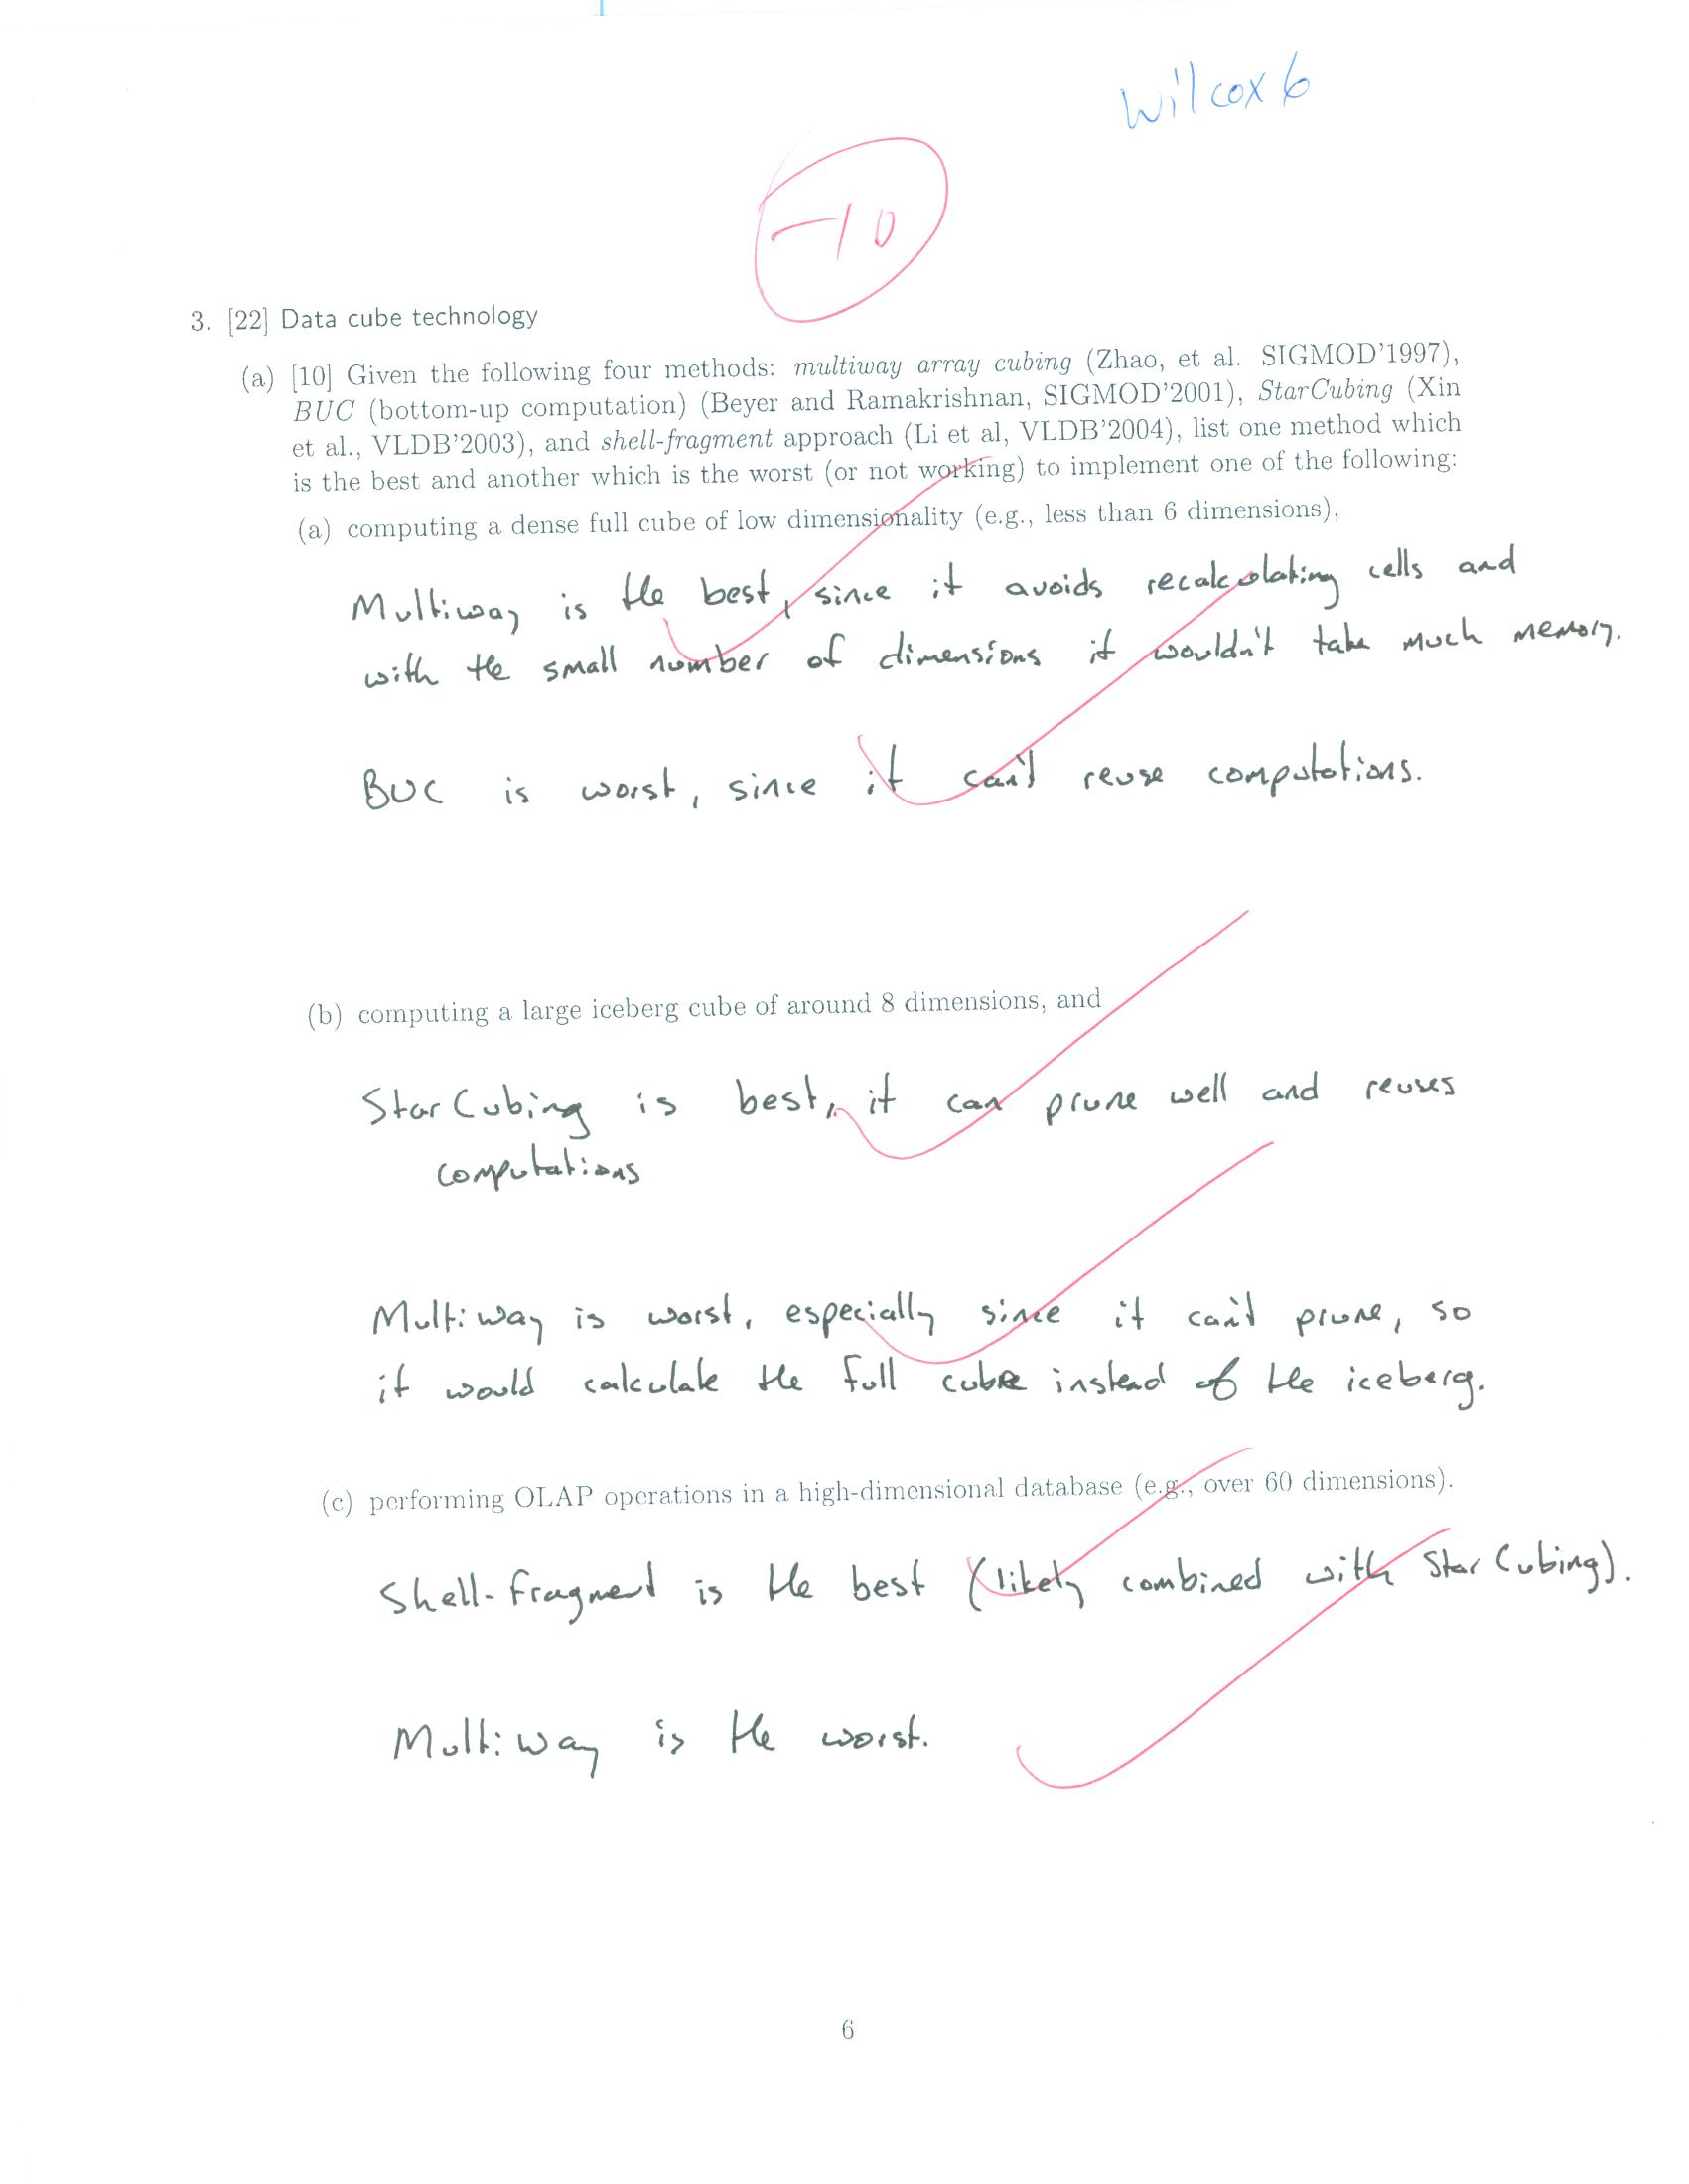 Wilcox 6
-10
3. [22] Data cube technology
(a) [10] Given the following four methods: multiway array cubing (Zhao, et al. SIGMOD'1997),
BUC (bottom-up computation) (Beyer and Ramakrishnan, SIGMOD'2001), StarCubing (Xin
et al., VLDB'2003), and shell-fragment approach (Li et al, VLDB'2004), list one method which
is the best and another which is the worst (or not working) to implement one of the following:
(a) computing a dense full cube of low dimensionality (e.g., less than 6 dimensions),
Multiway is the best, since it avoids recalculating cells and
with the small number of dimensions it wouldn't take much memory.
BUC is worst, since it can't reuse computations.
(b) computing a large iceberg cube of around 8 dimensions, and
StarCubing is best, it can prune well and reuses
computations
Multiway is worst, especially since it can't prune, so
it would calculate the full cube instead of the iceberg.
(c) performing OLAP operations in a high-dimensional database (e.g., over 60 dimensions).
Shell-fragment is the best (likely combined with StarCubing).
Multiway is the worst.
6